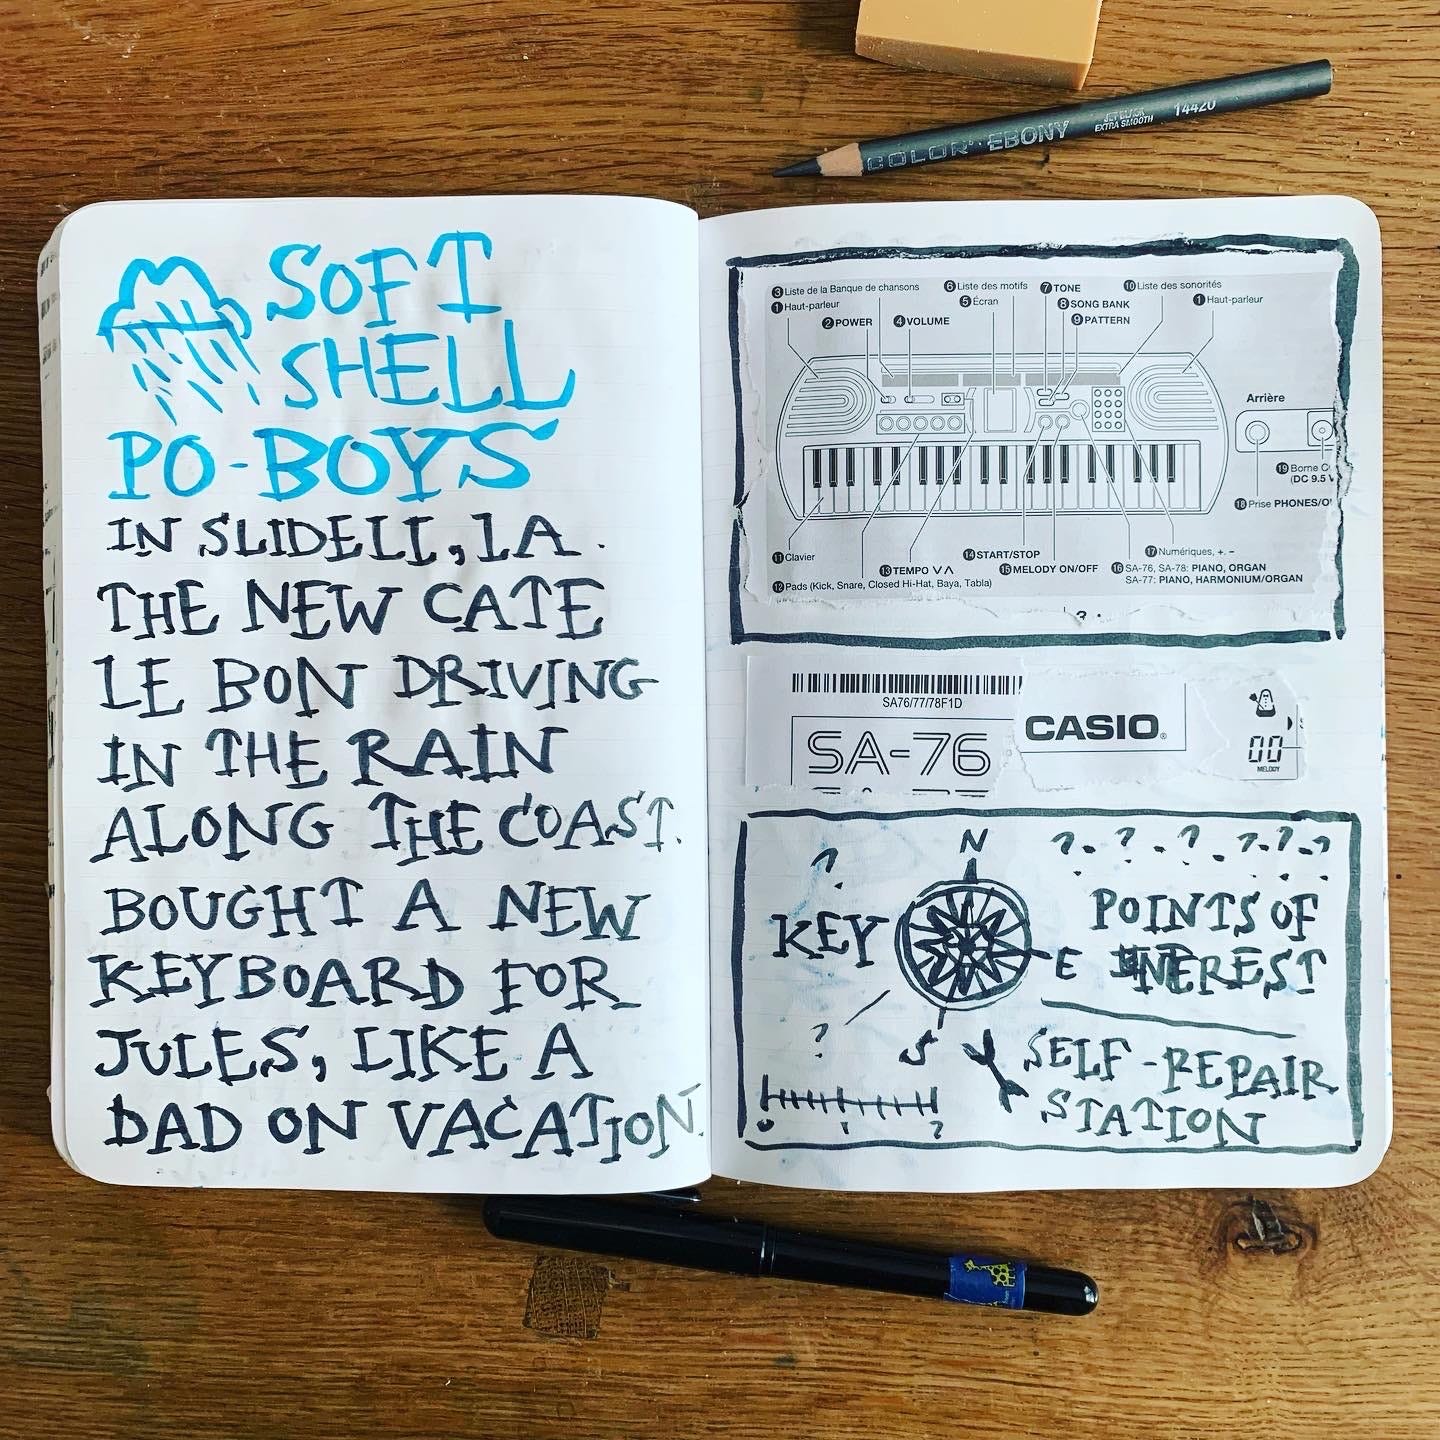 COLOR · EBONY JET BLACK EXTRA SMOOTH 14420
SOFT
SHELL
PO-BOYS
IN SLIDELL, LA.
THE NEW CATE
LE BON DRIVING
IN THE RAIN
ALONG THE COAST.
BOUGHT A NEW
KEYBOARD FOR
JULES, LIKE A
DAD ON VACATION.
3 Liste de la Banque de chansons
6 Liste des motifs
7 TONE
10 Liste des sonorités
1 Haut-parleur
5 Écran
8 SONG BANK
1 Haut-parleur
2 POWER
4 VOLUME
9 PATTERN
Arrière
19 Borne
(DC 9.5 V
18 Prise PHONES/
11 Clavier
14 START/STOP
17 Numériques, +, –
13 TEMPO ∨ ∧
15 MELODY ON/OFF
16 SA-76, SA-78: PIANO, ORGAN
SA-77: PIANO, HARMONIUM/ORGAN
12 Pads (Kick, Snare, Closed Hi-Hat, Baya, Tabla)
SA76/77/78F1D
SA-76
CASIO®
00
MELODY
N
? ? ? ? ? ? ?
?
KEY
POINTS OF
E
INEREST
?
S
SELF-REPAIR
STATION
0 1 2